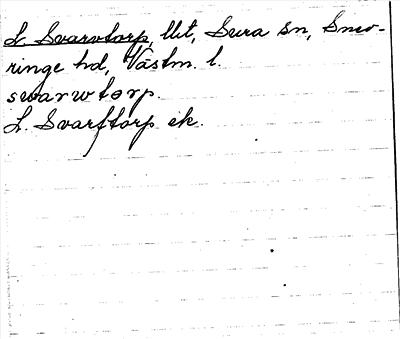 L. Svarvtorp, llt, Sura sn, Snev-
ringe hd, Västm. l.
swarwtorp.
L. Svarftorp ek.